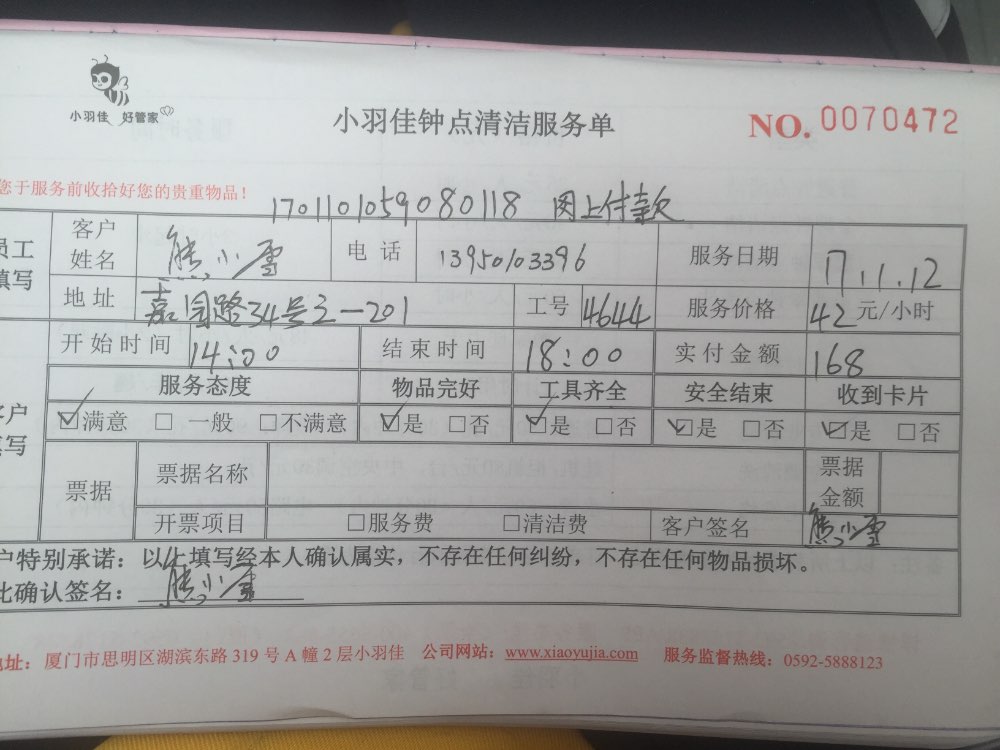 小羽佳 好管家
小羽佳钟点清洁服务单
NO. 0070472
您于服务前收拾好您的贵重物品！
1701101059080118 网上付款
员工填写
客户姓名 熊小雪 电话 13950103396 服务日期 17.11.12
地址 嘉园路34号之一201 工号 4644 服务价格 42元/小时
开始时间 14:00 结束时间 18:00 实付金额 168
服务态度 物品完好 工具齐全 安全结束 收到卡片
客户填写
☑满意 □一般 □不满意 ☑是 □否 ☑是 □否 ☑是 □否 ☑是 □否
票据 票据名称 票据金额
开票项目 □服务费 □清洁费 客户签名 熊小雪
户特别承诺：以上填写经本人确认属实，不存在任何纠纷，不存在任何物品损坏。
此确认签名：熊小雪
地址：厦门市思明区湖滨东路 319 号 A 幢 2 层小羽佳 公司网站：www.xiaoyujia.com 服务监督热线：0592-5888123